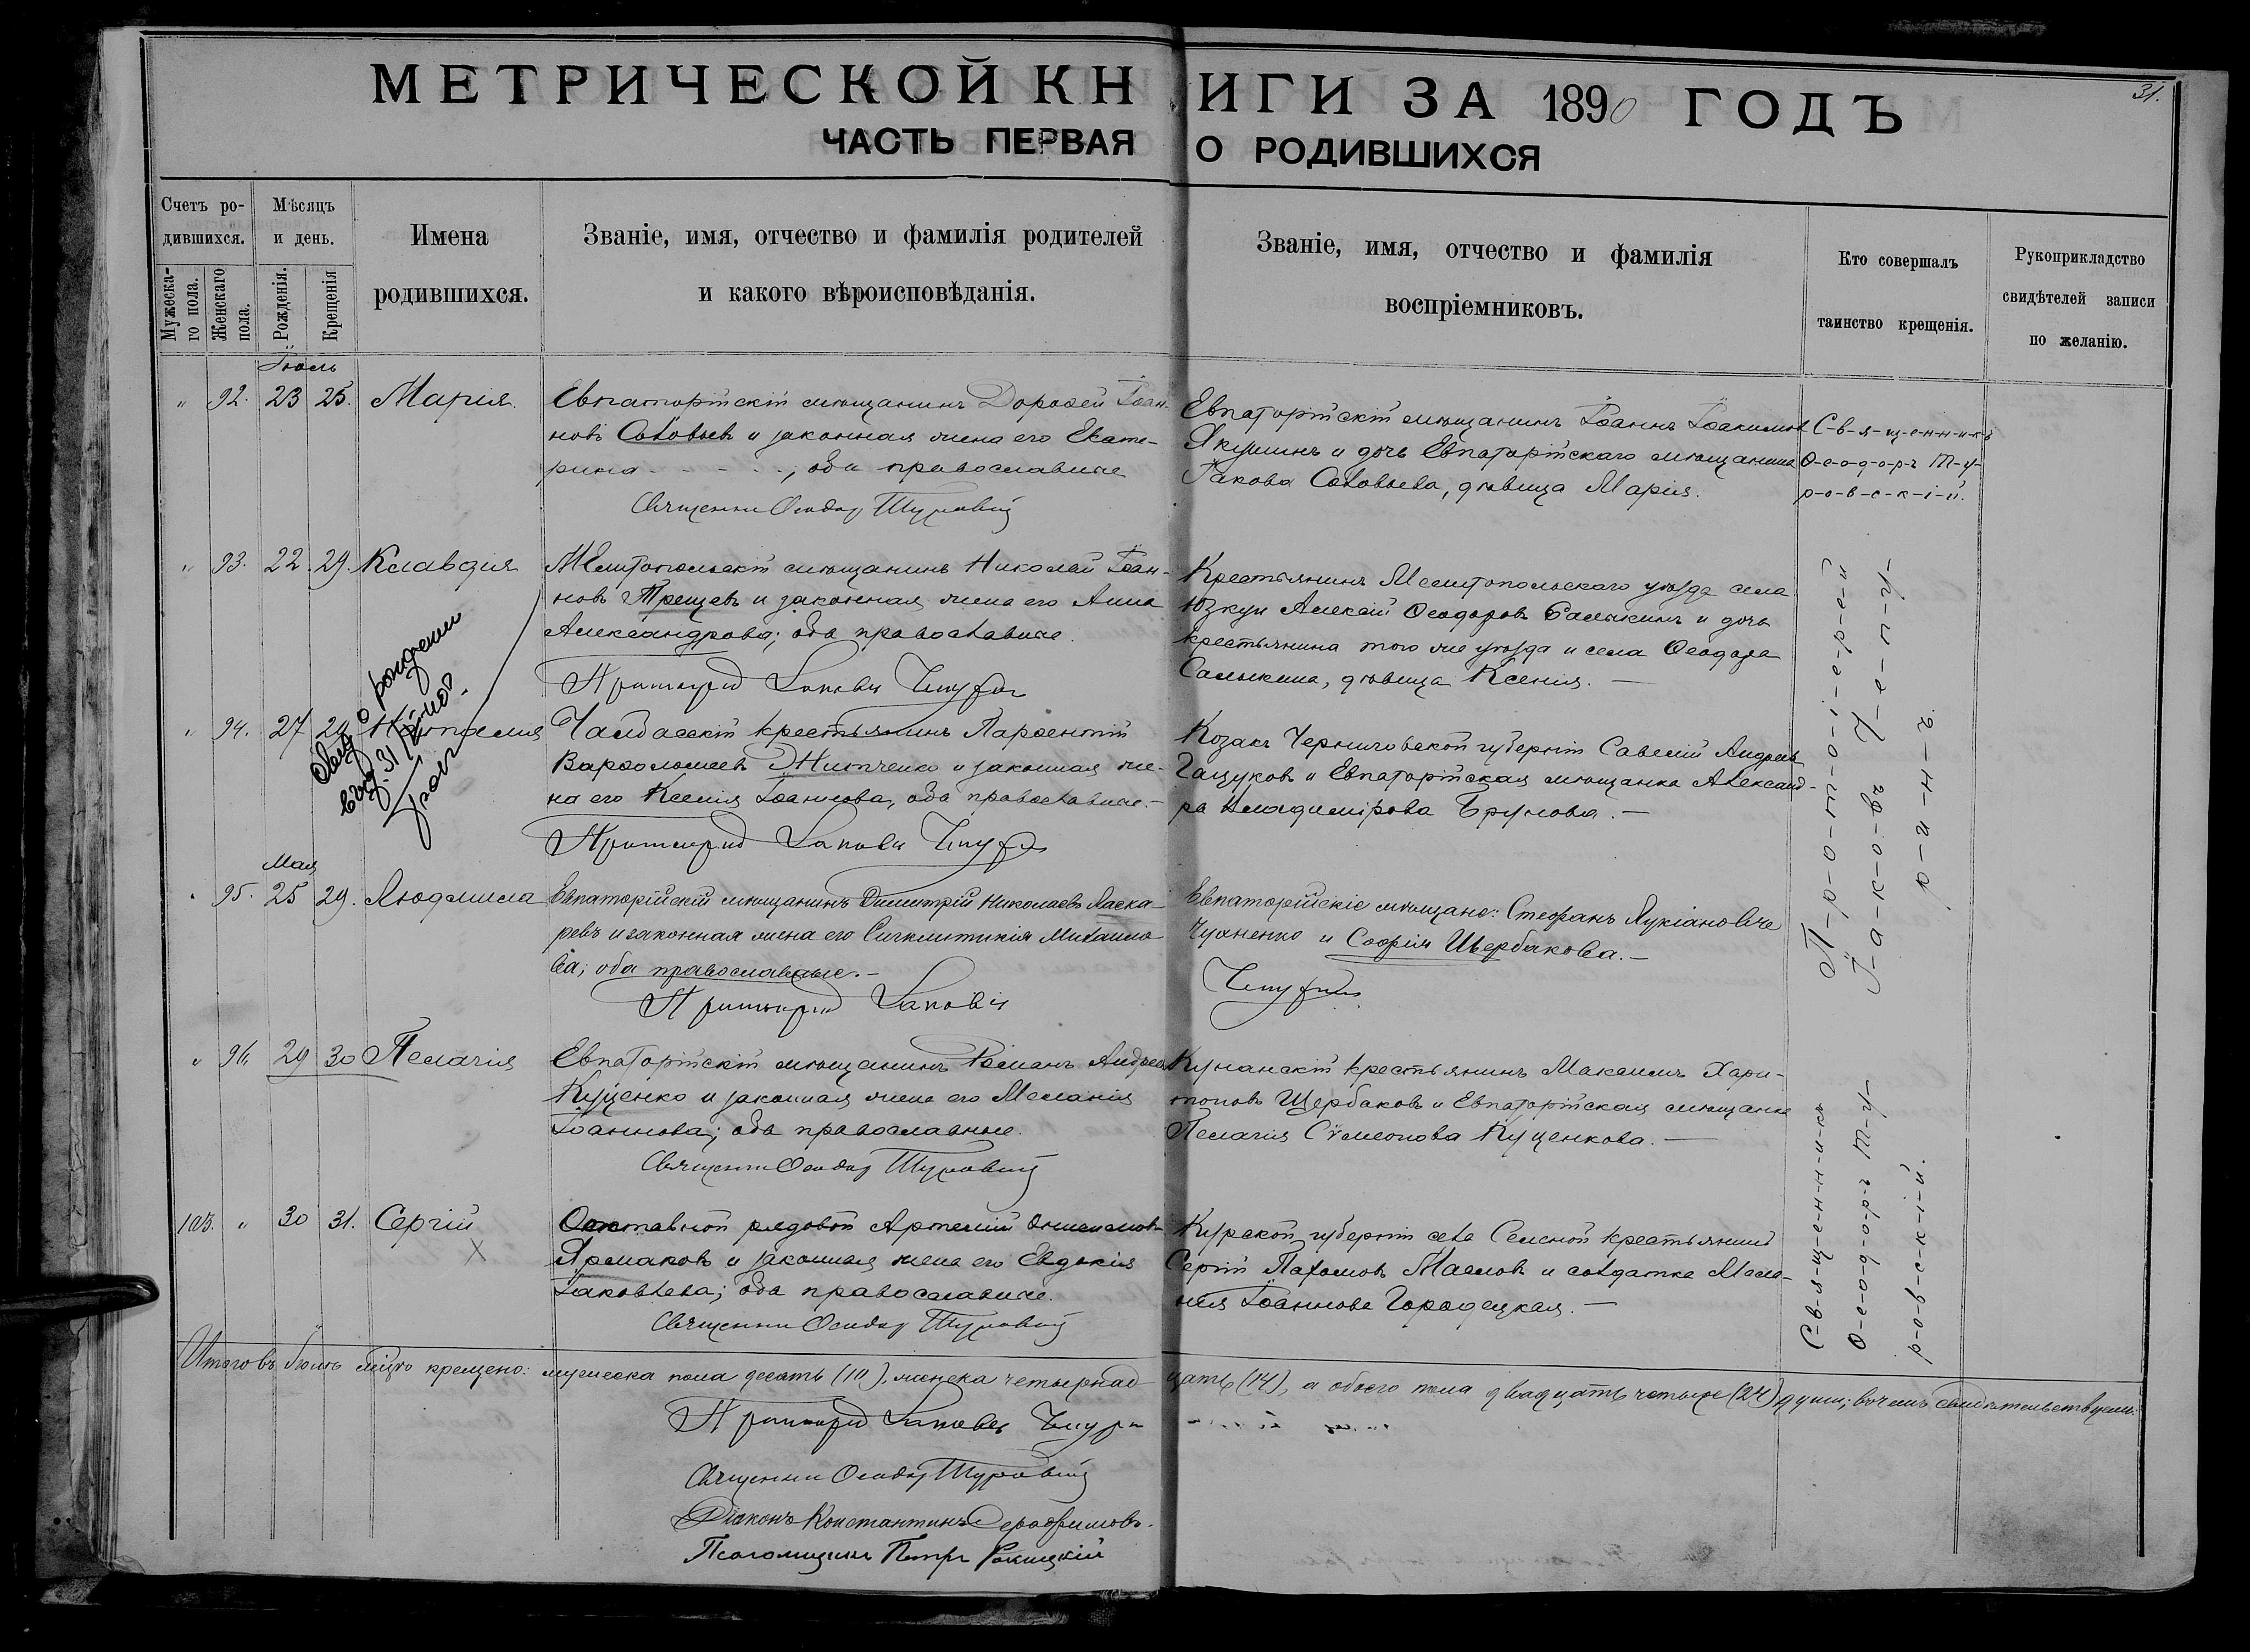 31.
МЕТРИЧЕСКОЙ КНИГИ ЗА 1890 ГОДЪ
ЧАСТЬ ПЕРВАЯ О РОДИВШИХСЯ
Счетъ родившихся.
Мужескаго пола.
Женскаго пола.
Мѣсяцъ и день.
Рожденія.
Крещенія
Имена родившихся.
Званіе, имя, отчество и фамилія родителей
и какого вѣроисповѣданія.
Званіе, имя, отчество и фамилія
воспріемниковъ.
Кто совершалъ
таинство крещенія.
Рукоприкладство
свидѣтелей записи
по желанію.
Іюль
" 92. 23 25. Марія.
Евпаторійскій мѣщанинъ Дороѳей Іоан-
новъ Соловьевъ и законная жена его Екате-
рина - - - - -, оба православные
Священникъ Ѳеодоръ Туровскій
Евпаторійскій мѣщанинъ Іоаннъ Іоакимовъ
Якушинъ и дочь Евпаторійскаго мѣщанина
Іакова Соловьева, дѣвица Марія.
С-в-я-щ-е-н-н-и-къ
Ѳ-е-о-д-о-р-ъ Т-у-
р-о-в-с-к-і-й.
" 93. 22. 29. Клавдія
Мелитопольскій мѣщанинъ Николай Іоан-
новъ Трещевъ и законная жена его Анна
Александрова; оба православные.
Протоіерей Іаковъ Чепуринъ
Крестьянинъ Мелитопольскаго уѣзда села
Юзкуи Алексій Ѳеодоровъ Салыкинъ и дочь
крестьянина того же уѣзда и села Ѳеодора
Салыкина, дѣвица Ксенія. —
П-р-о-т-о-і-е-р-е-й
І-а-к-о-въ Ч-е-п-у-
р-и-н-ъ.
о рожденіи
" 94. 27 29 Наталія
крестьянинъ Парѳентій
Варѳоломеевъ Житченко и законная же-
на его Ксенія Іоаннова, оба православные. —
Протоіерей Іаковъ Чепуринъ
Козакъ Черниговской губерніи Савелій Андреевъ
Гацуковъ и Евпаторійская мѣщанка Александ-
ра Владимірова Брунова. —
Мая
" 95. 25 29. Людмила
Евпаторійскій мѣщанинъ Димитрій Николаевъ Ласка-
ревъ и законная жена его Синклитикія Михаило-
ва; оба православные. —
Протоіерей Іаковъ
Евпаторійскіе мѣщане: Стефанъ Лукіановичъ
Чухненко и Софія Щербакова. —
Чепуринъ
" 96. 29 30 Пелагія
Евпаторійскій мѣщанинъ Романъ Андреевъ
Куценко и законная жена его Меланія
Іоаннова; оба православные.
Священникъ Ѳеодоръ Туровскій
крестьянинъ Максимъ Хари-
тоновъ Щербаковъ и Евпаторійская мѣщанка
Пелагія Сѵмеонова Куценкова. —
С-в-я-щ-е-н-н-и-къ
Ѳ-е-о-д-о-р-ъ Т-у-
р-о-в-с-к-і-й.
" 30 31. Сергій
Х
Отставной рядовой Артемій
Ярмаковъ и законная жена его Евдокія
Іаковлева; оба православные.
Священникъ Ѳеодоръ Туровскій
Курской губерніи села крестьянинъ
Сергій Пахомовъ Масловъ и солдатка Мела-
нія Іоаннова Городецкая. —
Итого въ Іюлѣ мѣсяцѣ крещено: мужеска пола десять (10), женска четырнадцать (14), а обоего пола двадцать четыре (24) души; въ чемъ свидѣтельствуемъ:
Протоіерей Іаковъ Чепуринъ
Священникъ Ѳеодоръ Туровскій
Діаконъ Константинъ Серафимовъ.
Псаломщикъ Петръ Ракицкій